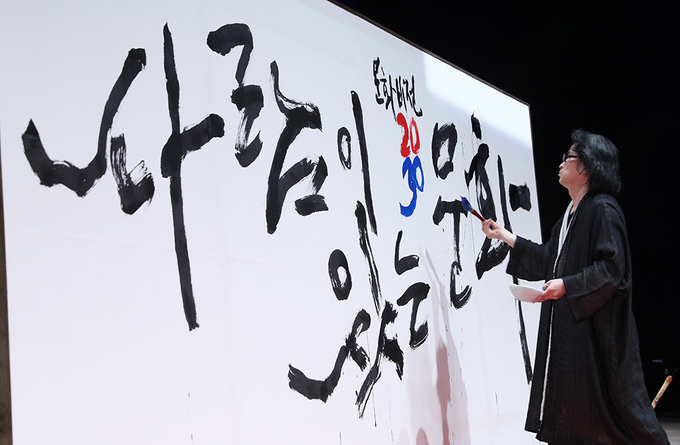 문화비전
20
30
사람이
있는 문화